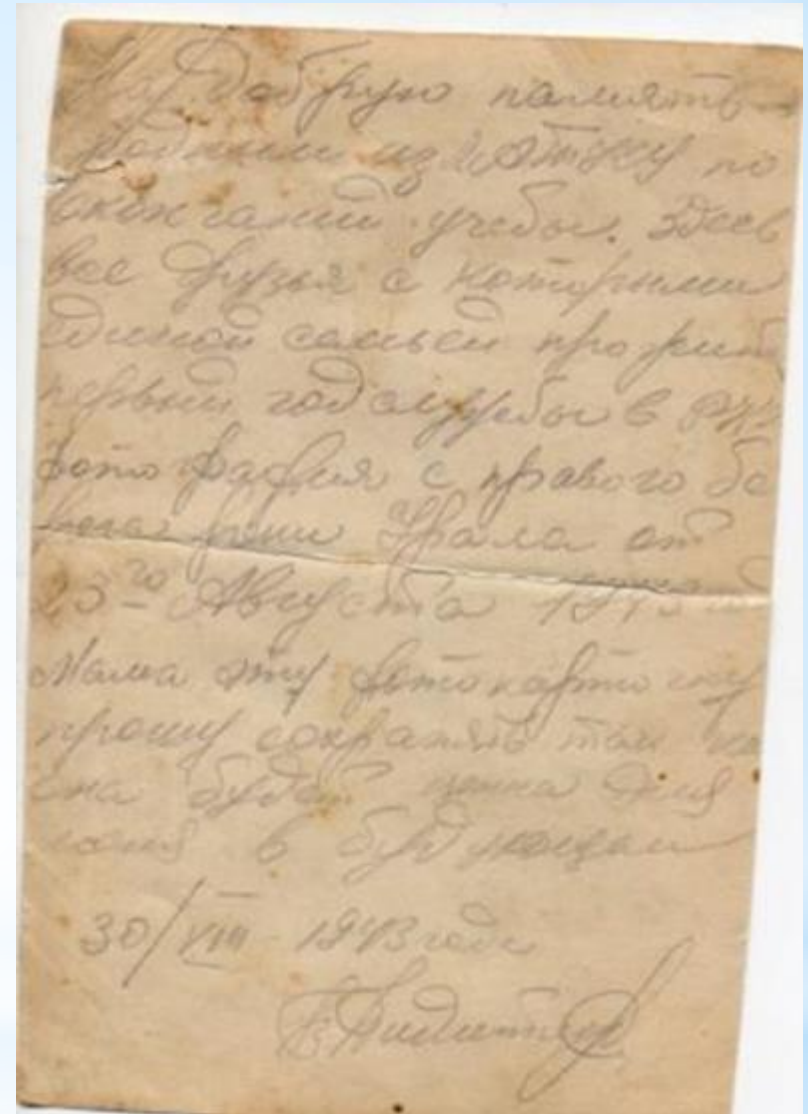 На добрую память
родным из по
окончании учебы. Здесь
все друзья с которыми
единой семьей прожит
первый год службы в
фотография с правого бе
рега реки Урала от
23го Августа 1943
Мама эту фотокарточку
прошу сохранять так
она будет ценна для
меня в будующем
30/VIII - 1943 года